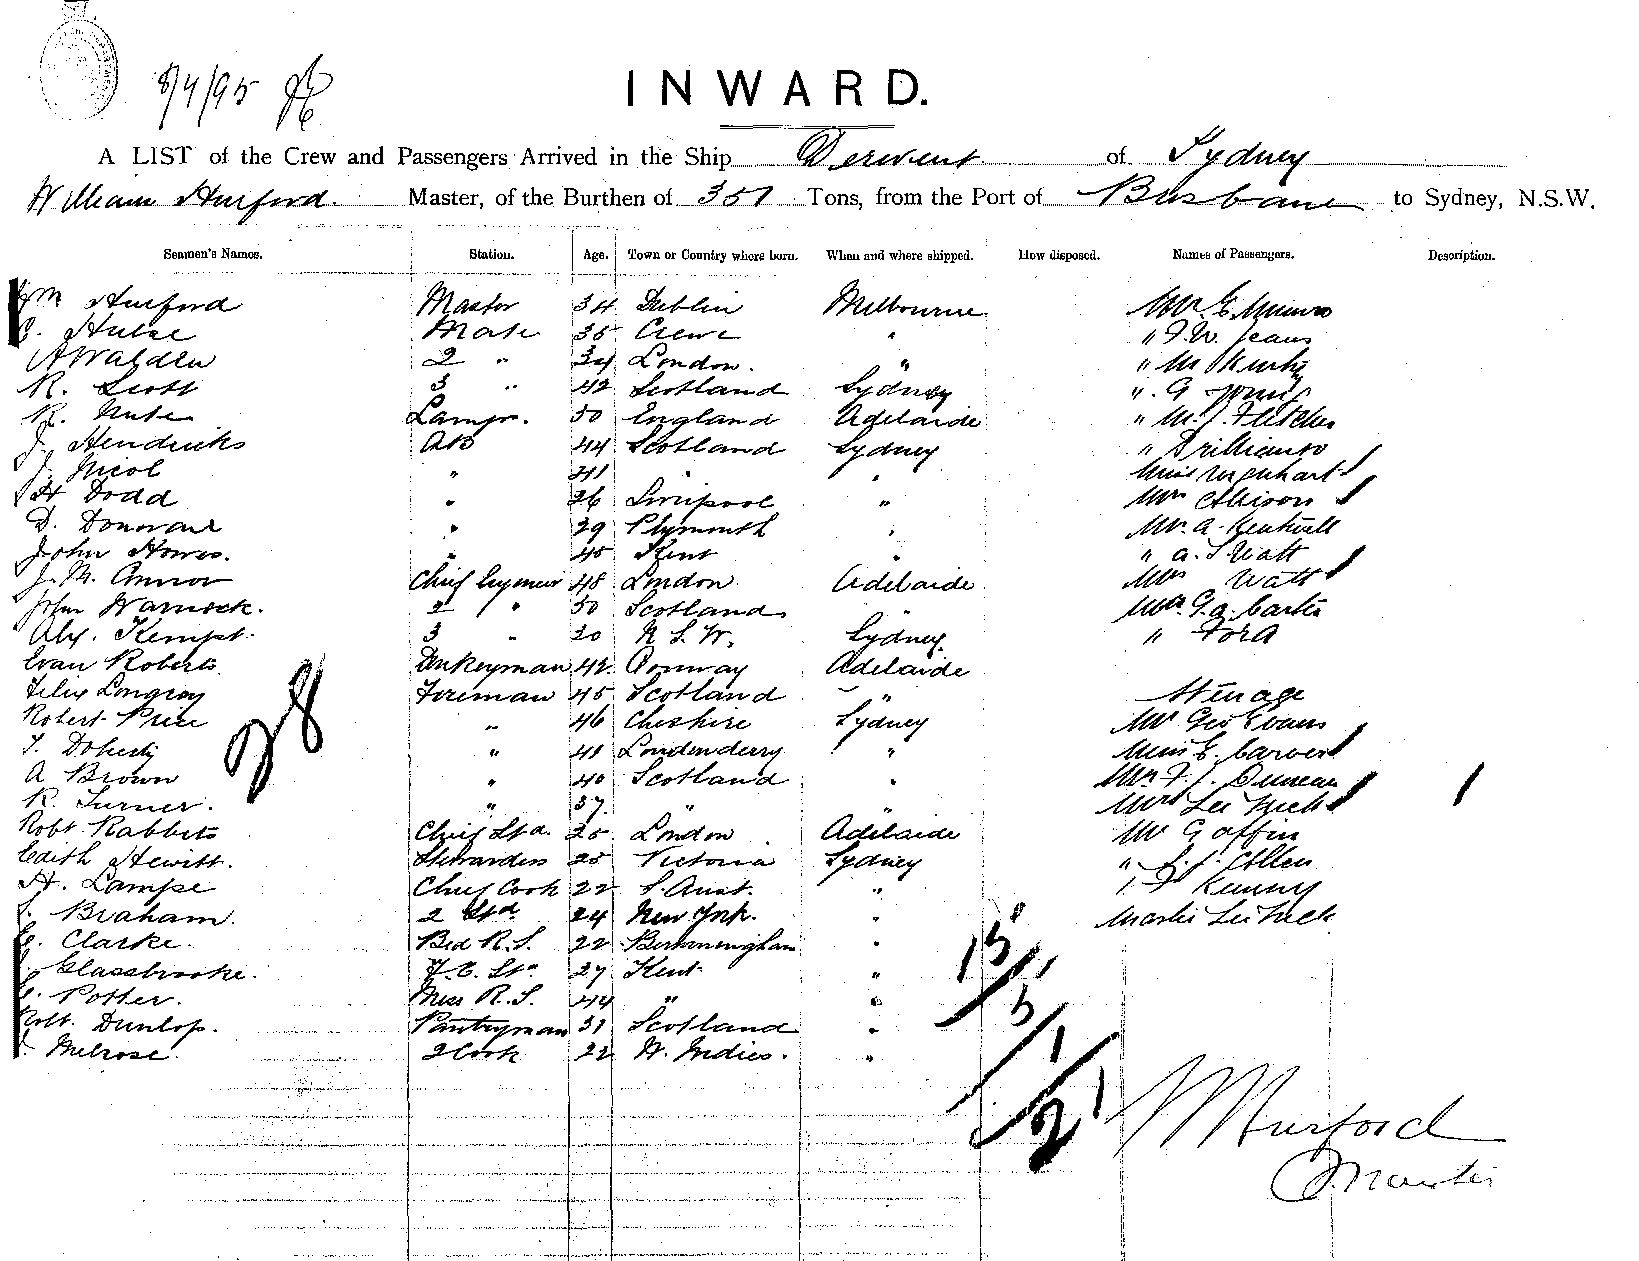 8/4/95
INWARD.
A LIST of the Crew and Passengers Arrived in the Ship Derwent of Sydney
William Hurford Master, of the Burthen of 351 Tons, from the Port of Brisbane to Sydney, N.S.W.
Seamen's Names. Station. Age. Town or Country where born. When and where shipped. How disposed. Names of Passengers. Description.
Wm Hurford Master 34 Dublin Melbourne Mr. G. Munro
C. Hulse Mate 35 Crewe " " F. W. Jeans
A Walden 2 " 34 London. " " M
R. Scott 3 " 42 Scotland Sydney " G
R. Nute Lamps. 50 England Adelaide " M. J. Fletcher
J. Hendricks AB 44 Scotland Sydney "
J. Nicol " 41 " " Miss Urquhart
H Dodd " 26 Liverpool " Mrs Allison
D. Donovan " 29 Plymouth " Mr. A.
John Howes. " 45 Kent " " A. S Watt
J. M. Chief 48 London Adelaide Mrs Watt
John Warnock. 2 " 50 Scotland " Mr. G. A. Carter
Alex. Kempt. 3 " 30 N. S. W. Sydney. " Ford
Evan Roberts Donkeyman 42 Conway Adelaide
Felix Longroy Fireman 45 Scotland " Steerage
Robert Price " 46 Cheshire Sydney Mr Geo Evans
T. Doherty " 41 Londonderry " Miss E. Carver
A Brown " 40 Scotland " Mr. F. J. Duncan
R. Turner. " 37 " " Mrs Lee
Robt Rabbits Chief Std. 25 London Adelaide Mr Gaffin
Edith Hewitt. Stewardess 25 Victoria Sydney " S. J. Allen
H. Lampe Chief Cook 22 S. Aust. " " Kenny
Braham. 2 Std 24 New York. " Master Lee
C. Clarke. Bed R. S. 22 Birmingham "
Glassbrooke. F. C. Std 27 Kent "
C. Potter. Mess R. S. 44 " "
Robt. Dunlop. Pantryman 31 Scotland "
Melrose. 2 Cook 22 W. Indies. "
28
13/5/1
2/1
W Hurford
Master